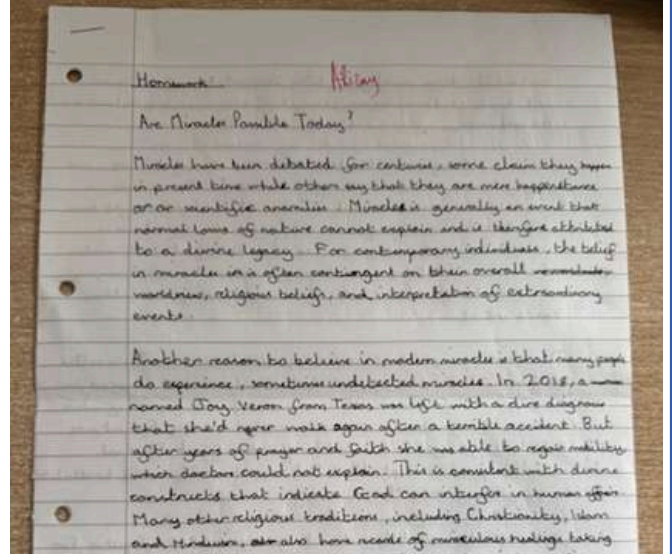 Homework Alizay
Are Miracles Possible Today?
Miracles have been debated for centuries, some claim they happen
in present time while others say that they are mere happenstance
or or scientific anomalies. Miracles is generally an event that
normal laws of nature cannot explain and is therefore attributed
to a divine legacy. For contemporary individuals, the belief
in miracles in is often contingent on their overall
worldview, religious beliefs, and interpretation of extraordinary
events.
Another reason to believe in modern miracles is that many people
do experience, sometimes undetected miracles. In 2018, a
named Joy Veron from Texas was left with a dire diagnosis
that she'd never walk again after a terrible accident. But
after years of prayer and faith she was able to regain mobility
which doctors could not explain. This is consistent with divine
constructs that indicate God can interfer in human affairs
Many other religious traditions, including Christianity, Islam
and Hinduism, also have records of miraculous healings taking